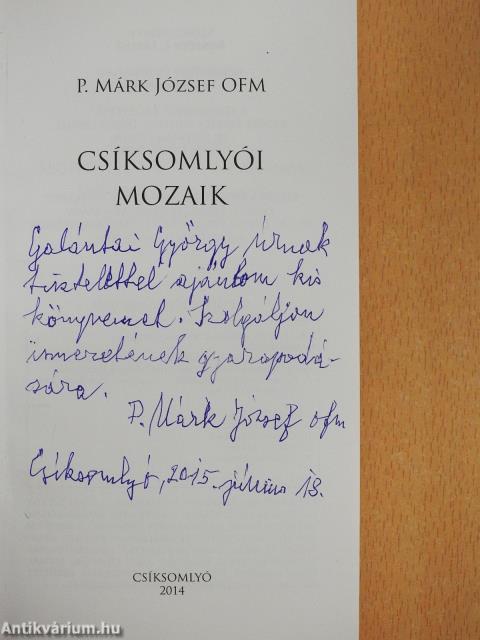 P. MÁRK JÓZSEF OFM
CSÍKSOMLYÓI
MOZAIK
Galántai György úrnak
tisztelettel ajánlom kis
könyvemet. Szolgáljon
ismeretének gyarapodá-
sára.
P. Márk József ofm
Csíksomlyó, 2015. július 13.
CSÍKSOMLYÓ
2014
Antikvárium.hu